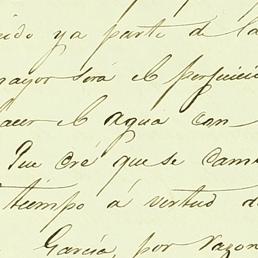 ido ya parte de la
mayor será el perjuicio
hacer el agua con
Que cré que se cam
tiempo á virtud d
García, por razon